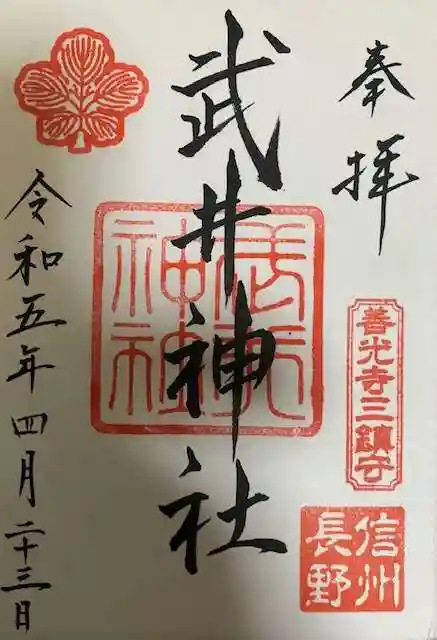 奉拝
善光寺三鎮守
信州
長野
武井神社
令和五年四月二十三日